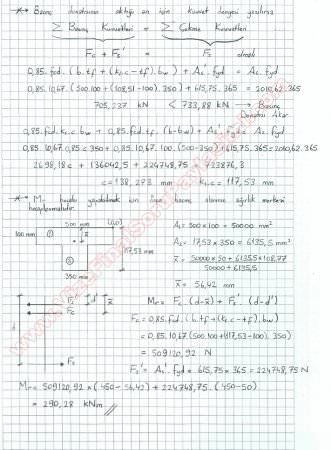 * Basınç donatısının aktığı an için kuvvet dengesi yazılırsa
∑ Basınç Kuvvetleri = ∑ Çekme Kuvvetleri
Fc + Fs' = Fs olmalı
0,85.fcd.(b.tf + (k₁c-tf).bw) + As'.fyd = As.fyd
0,85.10,67.(500.100 + (108,51-100).350) + 615,75.365 = 2010,62.365
705,237 kN < 733,88 kN → Basınç
Donatısı Akar
0,85.fcd.k₁.c.bw + 0,85.fcd.tf.(b-bw) + As'.fyd = As.fyd
0,85.10,67.0,85.c.350 + 0,85.10,67.100.(500-350) + 615,75.365 = 2010,62.365
2698,18c + 136042,5 + 224748,75 = 733876,3
c = 138,273 mm k₁.c = 117,53 mm
* Mr hesabı yapabilmek için önce basınç alanının ağırlık merkezi
hesaplanmalıdır.
500 mm
100 mm
①
x̄
117,53 mm
②
350 mm
A₁ = 500 x 100 = 50000 mm²
A₂ = 17,53 x 350 = 6135,5 mm²
x̄ = 50000 x 50 + 6135,5 x 108,77
50000 + 6135,5
x̄ = 56,42 mm
Fs'
Fc
d'
x̄
d
Fs
Mr = Fc (d-x̄) + Fs' (d-d')
Fc = 0,85.fcd.(b.tf + (k₁c-tf).bw)
= 0,85.10,67(500.100 + (117,53-100).350)
= 509120,92 N
Fs' = As'.fyd = 615,75 x 365 = 224748,75 N
Mr = 509120,92 x (450-56,42) + 224748,75.(450-50)
= 290,28 kNm //